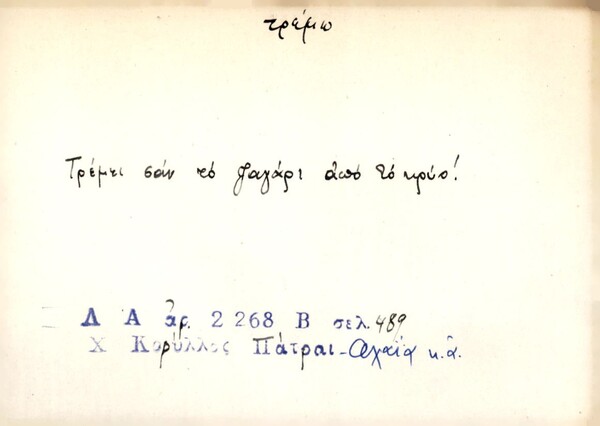 τρέμω
Τρέμει σάν τό ζαγάρι ἀπό τό κρύο!
Λ Α ἀρ. 2 268 Β σελ. 489
Χ Κορύλλος Πάτραι - Ἀχαΐα κ.ἀ.